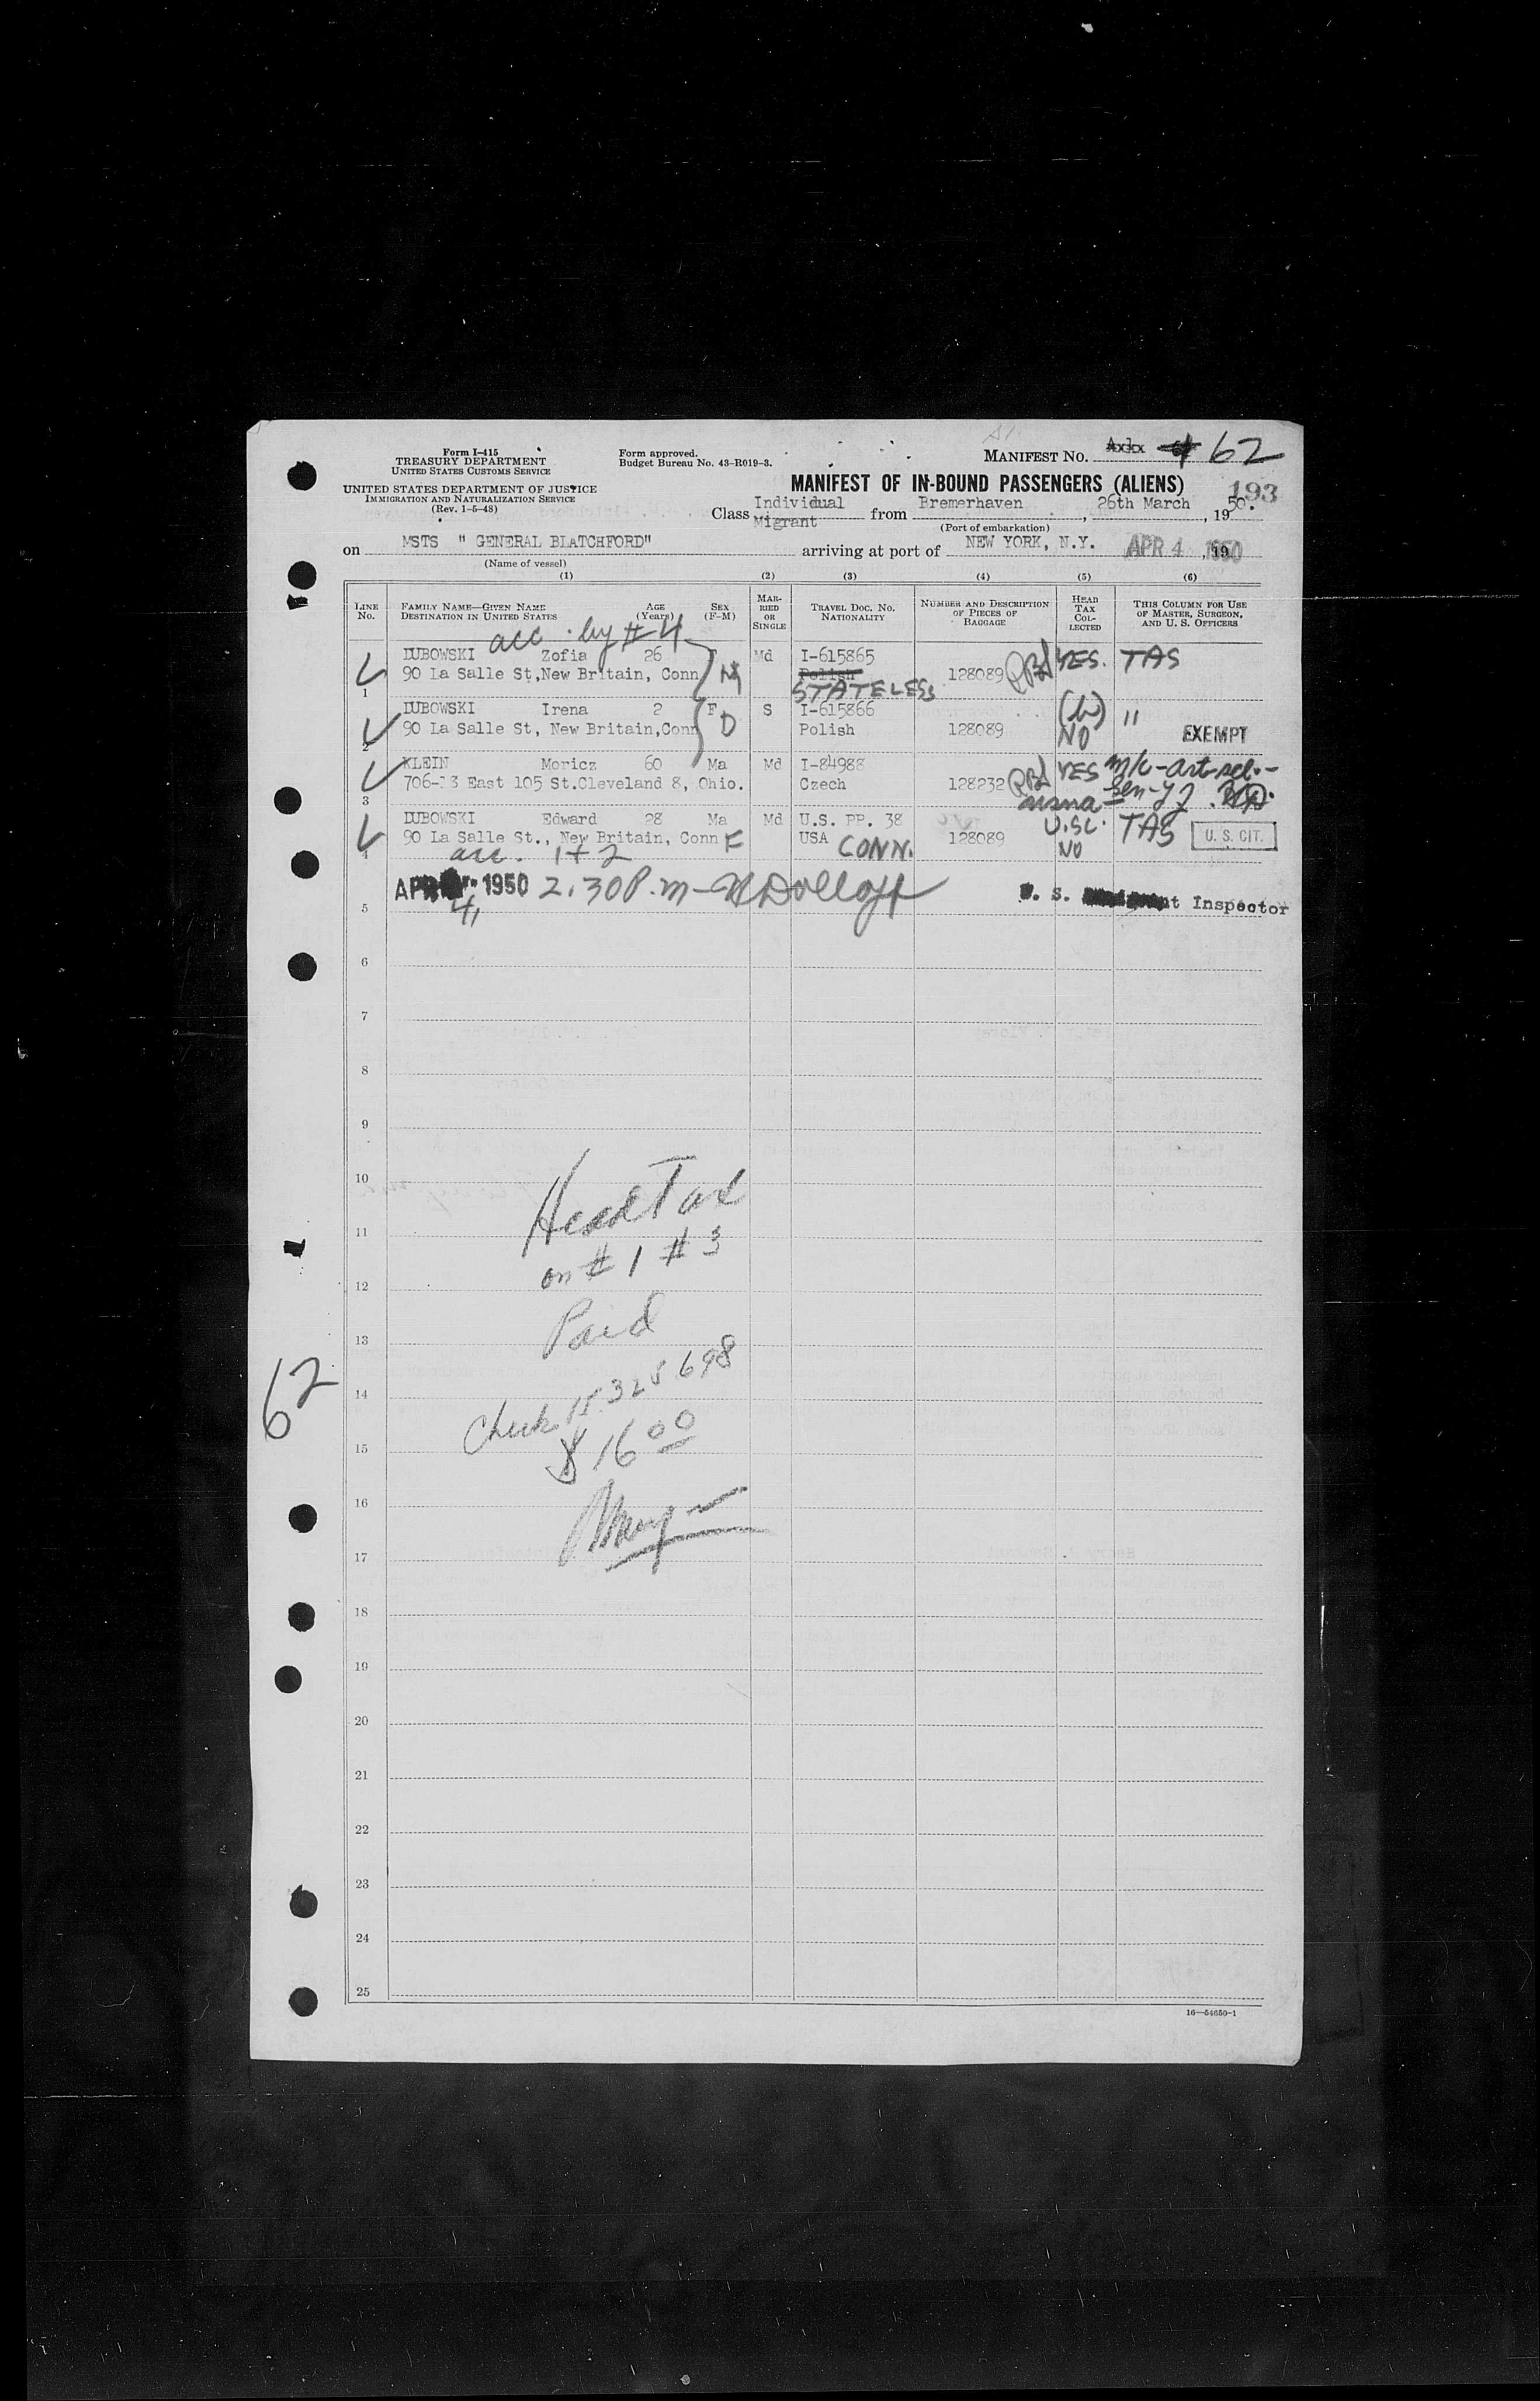 Form I-415
TREASURY DEPARTMENT
UNITED STATES CUSTOMS SERVICE
UNITED STATES DEPARTMENT OF JUSTICE
IMMIGRATION AND NATURALIZATION SERVICE
(Rev. 1-5-48)
Form approved.
Budget Bureau No. 43-R019-3.
MANIFEST NO. 62
MANIFEST OF IN-BOUND PASSENGERS (ALIENS) 193
Class Individual Migrant from Bremerhaven, 26th March, 1950.
(Port of embarkation)
on MSTS " GENERAL BLATCHFORD" arriving at port of NEW YORK, N.Y. APR 4 1950
(Name of vessel)
(1) (2) (3) (4) (5) (6)
LINE NO. FAMILY NAME—GIVEN NAME DESTINATION IN UNITED STATES AGE (Years) SEX (F-M) MARRIED OR SINGLE TRAVEL DOC. NO. NATIONALITY NUMBER AND DESCRIPTION OF PIECES OF BAGGAGE HEAD TAX COLLECTED THIS COLUMN FOR USE OF MASTER, SURGEON, AND U. S. OFFICERS
acc. by #4
DUBOWSKI Zofia 26 Md I-615865 YES. TAS
1 90 La Salle St,New Britain, Conn M Polish 128089
STATELESS
DUBOWSKI Irena 2 F S I-615866 "
2 90 La Salle St, New Britain,Conn D Polish 128089 NO EXEMPT
KLEIN Moricz 60 Ma Md I-84988 YES
3 706-13 East 105 St.Cleveland 8, Ohio. Czech 128232
DUBOWSKI Edward 28 Ma Md U.S. PP. 38 U.SC. TAS U. S. CIT.
4 90 La Salle St., New Britain, Conn F USA CONN. 128089 NO
acc. 1+2
APR 4, 1950 2.30 P.m - Dolloff U. S. Inspector
5
6
7
8
9
10
Head Tax
11
on #1 #3
12
Paid
13
Check 15.325698
14
15
$16 00
16
17
18
19
20
21
22
23
24
25
62
16—54650-1